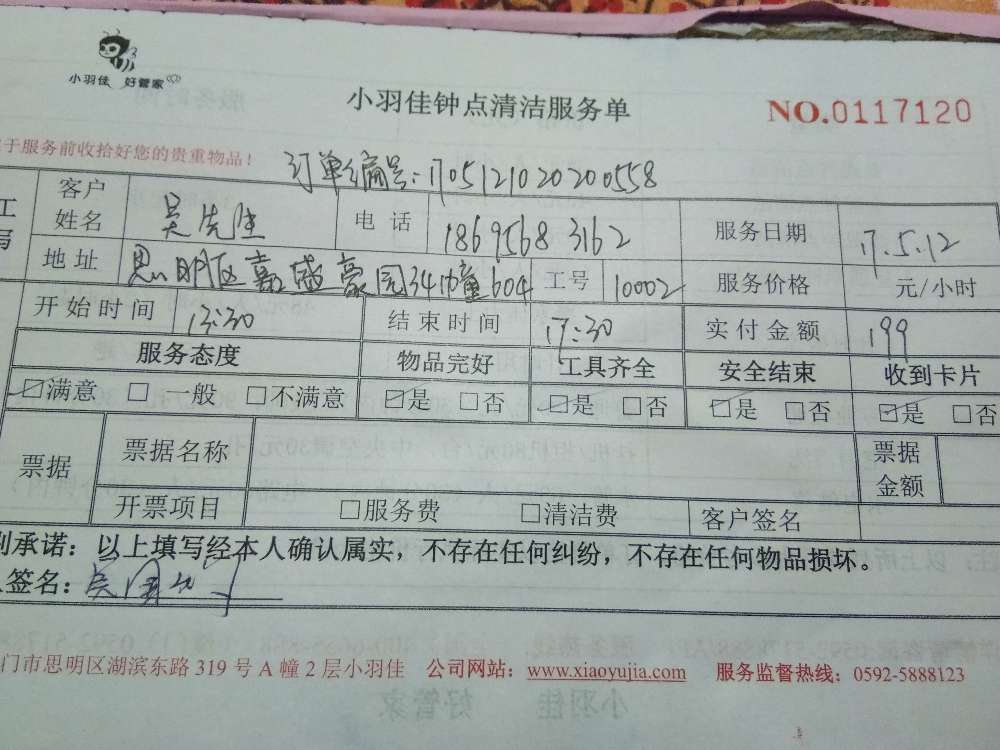 小羽佳 好管家
小羽佳钟点清洁服务单
NO.0117120
于服务前收拾好您的贵重物品!
订单编号:1705121020200558
客户姓名 吴先生 电话 18695683162 服务日期 17.5.12
地址 思明区嘉盛豪园34幢604 工号 10002 服务价格 元/小时
开始时间 13:30 结束时间 17:30 实付金额 199
服务态度 物品完好 工具齐全 安全结束 收到卡片
☑满意 □一般 □不满意 ☑是 □否 ☑是 □否 ☑是 □否 ☑是 □否
票据 票据名称 票据金额
开票项目 □服务费 □清洁费 客户签名
承诺:以上填写经本人确认属实,不存在任何纠纷,不存在任何物品损坏。
签名:
门市思明区湖滨东路 319 号 A 幢 2 层小羽佳 公司网站:www.xiaoyujia.com 服务监督热线:0592-5888123